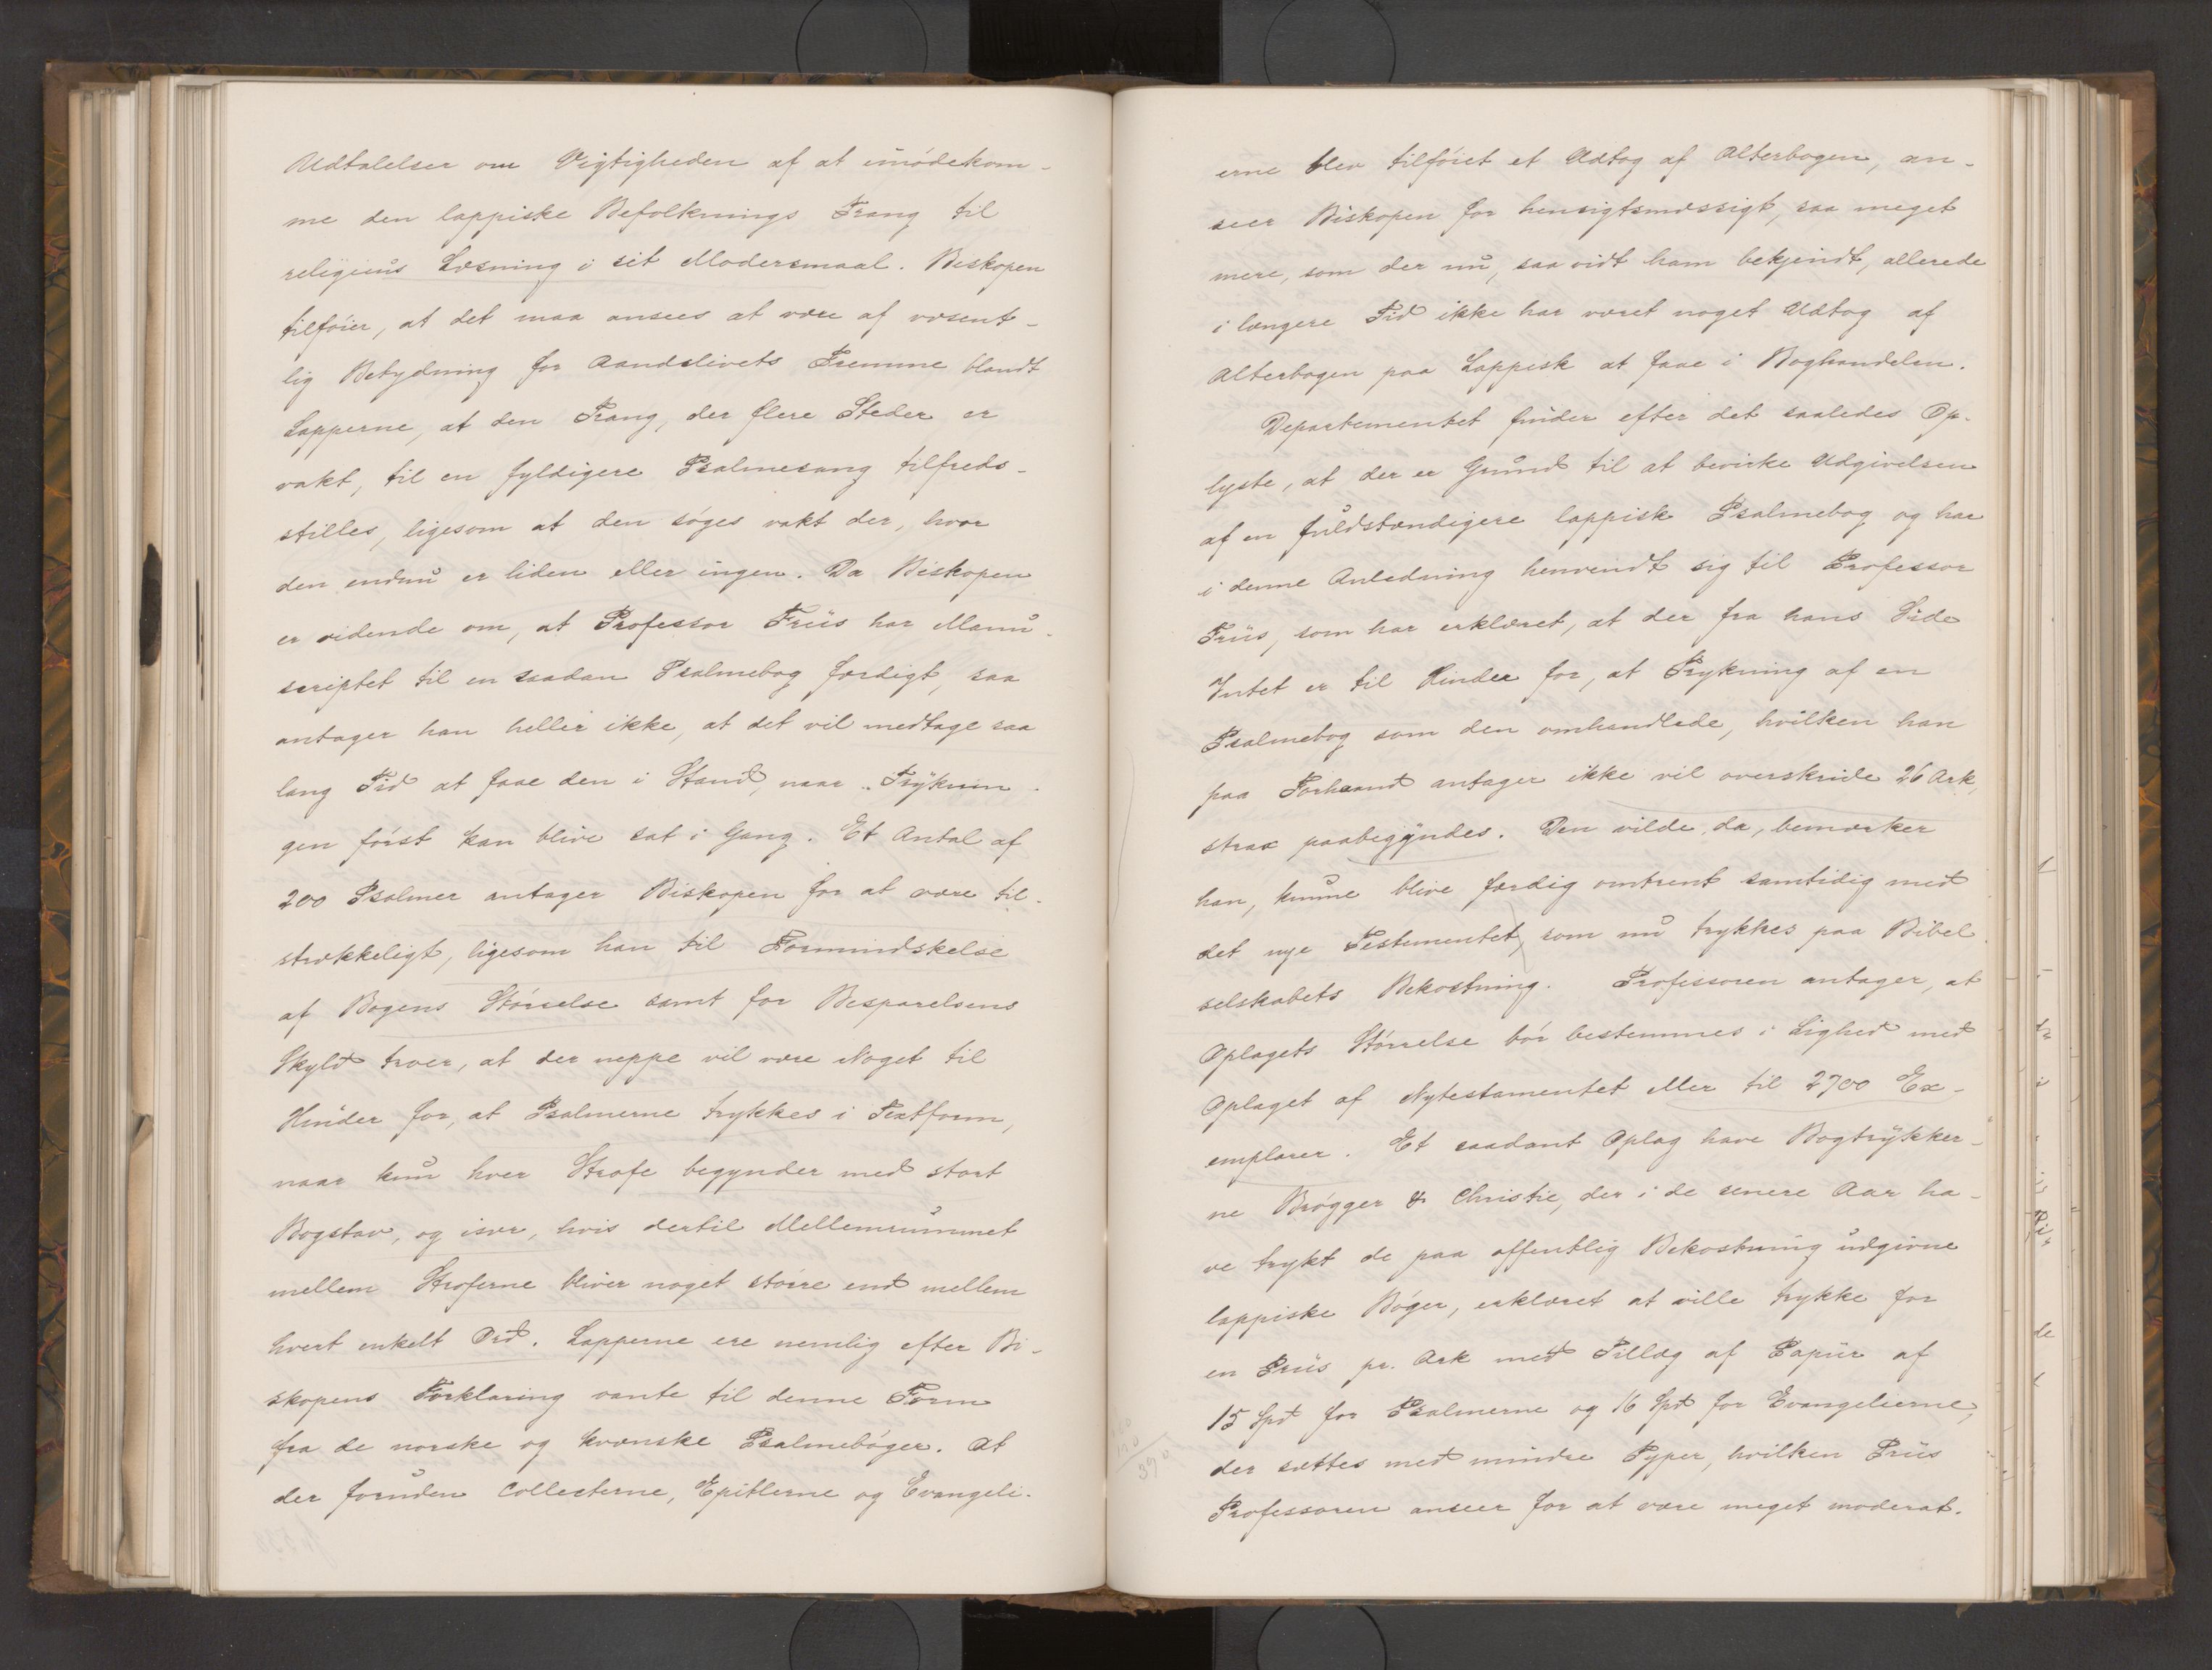 Udtalelser om Vigtigheden af at imødekom-
me den lappiske Befolknings Trang til
religiøus Læsning i sit Modersmaal. Biskopen
tilføier, at det maa ansees at være af væsent-
lig Betydning for Aandslivets Fremme blandt
Lapperne, at den Trang, der flere Steder er
vakt, til en fyldigere Psalmesang tilfreds-
stilles, ligesom at den søges vakt der, hvor
den endnu er liden eller ingen. Da Biskopen
er vidende om, at Professor Friis har Manu-
scriptet til en saadan Psalmebog færdigt, saa
antager han heller ikke, at det vil medtage saa
lang Tid at faae den i Stand, naar Tryknin-
gen først kan blive sat i Gang. Et Antal af
200 Psalmer antager Biskopen for at være til-
strækkeligt, ligesom han til Formindskelse
af Bogens Størrelse samt for Besparelsens
Skyld troer, at der neppe vil være Noget til
Hinder for, at Psalmerne trykkes i Textform,
naar kun hver Strofe begynder med stort
Bogstav, og især, hvis dertil Mellemrummet
mellem Stroferne bliver noget større end mellem
hvert enkelt Ord. Lapperne ere nemlig efter Bi-
skopens Forklaring vante til denne Form
fra de norske og kvænske Psalmebøger. At
der foruden Collecterne, Epistlerne og Evangeli-
erne blev tilføiet et Udtog af Alterbogen, an-
seer Biskopen for hensigtsmæssigt, saa meget
mere, som der nu, saa vidt ham bekjendt, allerede
i længere Tid ikke har været noget Udtog af
Alterbogen paa Lappisk at faae i Boghandelen.
Departementet finder efter det saaledes Op-
lyste, at der er Grund til at bevirke Udgivelsen
af en fuldstændigere lappisk Psalmebog og har
i denne Anledning henvendt sig til Professor
Friis, som har erklæret, at der fra hans Side
Intet er til Hinder for, at Trykning af en
Psalmebog som den omhandlede, hvilken han
paa Forhaand antager ikke vil overskride 26 Ark,
strax paabegyndes. Den vilde da, bemærker
han, kunne blive færdig omtrent samtidig med
det nye Testamentet, som nu trykkes paa Bibel
selskabets Bekostning. Professoren antager, at
Oplagets Størrelse bør bestemmes i Lighed med
Oplaget af Nytestamentet eller til 2700 Ex-
emplarer. Et saadant Oplag have Bogtrykker-
ne Brøgger & Christie, der i de senere Aar ha-
ve trykt de paa offentlig Bekostning udgivne
lappiske Bøger, erklæret at ville trykke for
en Priis pr. Ark med Tillæg af Papiir af
15 Spd for Psalmerne og 16 Spd for Evangelierne,
der sættes med mindre Typer, hvilken Priis
Professoren anseer for at være meget moderat.
390